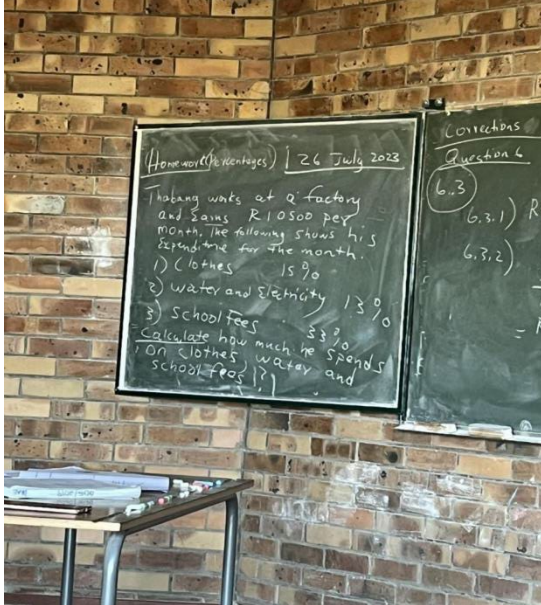 (Homework(Percentages) | 26 July 2023
Thabang works at a factory
and Earns R10500 per
month, The following shows his
Expenditure for the month.
1) Clothes 15%
2) Water and Electricity 13%
3) School Fees 33%
Calculate how much he spends
on clothes, water and
school fees?
Corrections
Question 6
6.3
6.3.1) R
6.3.2)
=